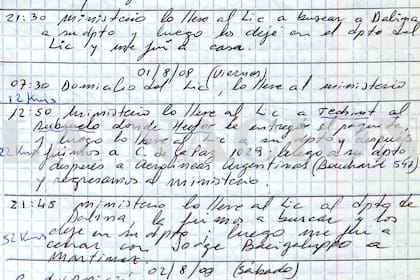 21:30 ministerio lo lleve al Lic a buscar a Dalina
a su dpto y luego lo dejé en el dpto del
Lic y me fui a casa.
01/8/08 (viernes)
07:30 Domicilio del Lic, lo lleve al ministerio
12 Kms
12:50 ministerio lo lleve al Lic a Techint al
Rulero donde Hector le entrego el paquete,
y luego lo lleve al Lic a su dpto y después
22 Kms fuimos a C. de la Paz 1029; luego a su dpto
después a Aerolineas Argentinas (Bouchard 547)
y regresamos al ministerio.
21:45 ministerio lo lleve al Lic al dpto de
Dalina, la fuimos a buscar y los
52 Kms deje en su dpto; luego me fui a
cenar con Jorge Bacigaluppo a
Martinez.
02/8/08 (sábado)